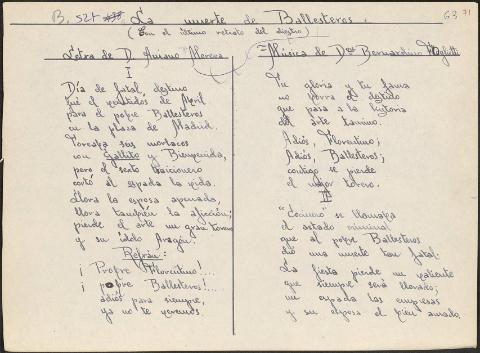 B. 521 La muerte de Ballesteros. 63 71
(Con el último retrato del diestro)
Letra de D. Aviano Moreva
Música de D. Bernardino
I
Día de fatal destino
fué el veintidos de Abril
para el pobre Ballesteros
en la plaza de Madrid.
Toreaba seis morlacos
con Gallito y Bienvenida,
pero el sexto traicionero
cortó al espada la vida.
Llora la esposa apenada,
llora también la afición;
pierde el arte un gran torero
y su ídolo Aragón.
Refrán:
¡Pobre Florentino!...
¡pobre Ballesteros!...
adiós para siempre,
ya no te veremos.
Tu gloria y tu fama
no borra el destino
que pasa a la historia
del arte taurino.
Adiós, Florentino;
Adiós, Ballesteros;
contigo se pierde
el mejor torero.
II
"Cocinero" se llamaba
el astado criminal
que al pobre Ballesteros
dió una muerte tan fatal.
La fiesta pierde un valiente
que siempre será llorado;
un espada las empresas
y su esposa el bien amado.